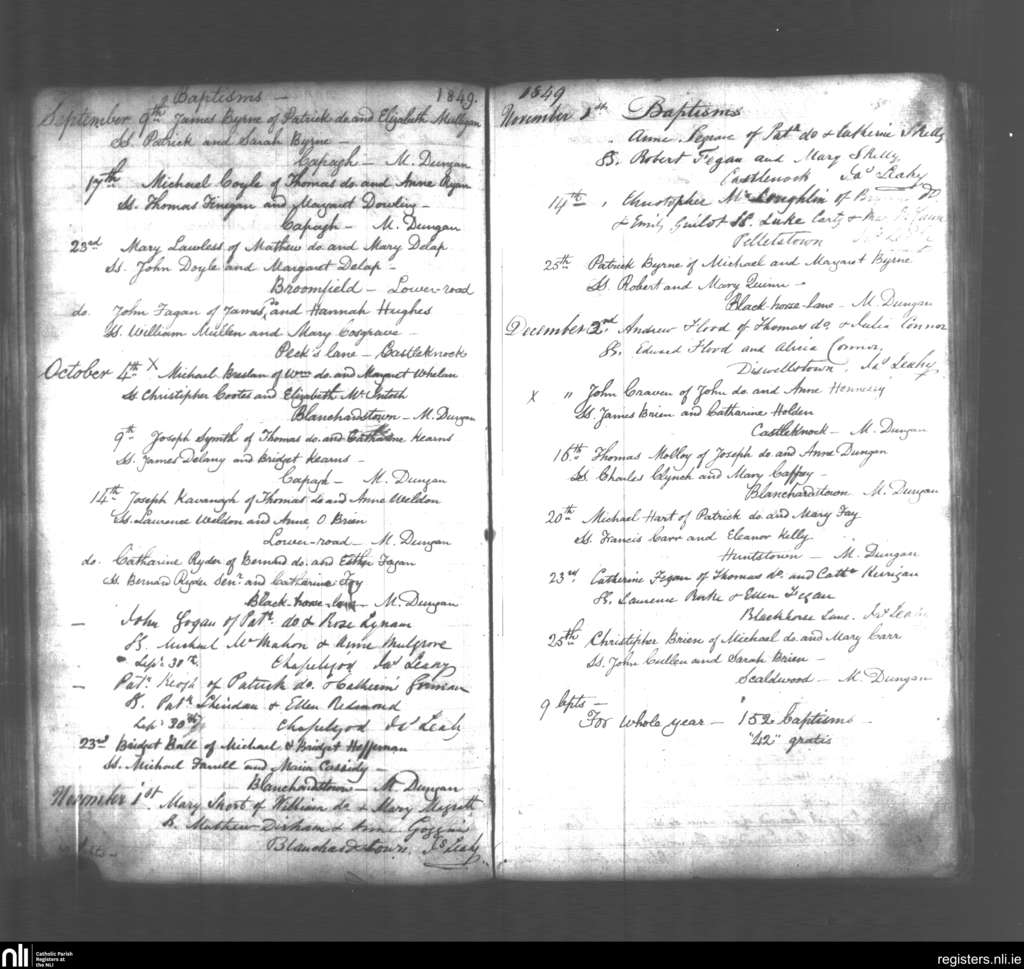 Baptisms — 1849.
September 9th James Byrne of Patrick do. and Elizabeth Mulligan
Ss. Patrick and Sarah Byrne —
Capagh — M. Dungan
17th Michael Coyle of Thomas do. and Anne Ryan
Ss. Thomas Finegan and Margaret Dowling —
Capagh — M. Dungan
23rd Mary Lawless of Mathew do. and Mary Delap
Ss. John Doyle and Margaret Delap —
Broomfield — Lower-road
do. John Fagan of James do and Hannah Hughes
Ss. William Mullen and Mary Cosgrave —
Peck's lane — Castleknock
October 4th X Michael Breslan of Wm do. and Margaret Whelan
Ss Christopher Cootes and Elizabeth McIntosh
Blanchardstown — M. Dungan
9th Joseph Symth of Thomas do. and Catharine Kearns
Ss. James Delany and Bridget Kearns —
Capagh — M. Dungan
14th Joseph Kavanagh of Thomas do and Anne Weldon
Ss. Laurence Weldon and Anne O Brien
Lower-road — M. Dungan
do. Catharine Ryder of Bernard do. and Esther Fagan
Ss. Bernard Ryder Senr. and Catharine Foy
Black-horse-lane — M. Dungan
— John Gogan of Patk. do & Rose Lynam
SS. Michael McMahon & Anne Mulgrove
" Sepr. 30th. Chapelizod Jas Leahy
— Patk. Keogh of Patrick do. & Catherine Gorman
SS. Patk Sheridan & Ellen Redmond
Sepr 30th Chapelizod Js Leahy
23rd Bridget Ball of Michael & Bridget Heffernan
Ss. Michael Farrell and Maria Cassidy —
Blanchardstown — M Dungan
November 1st. Mary Short of William do & Mary Magrath
S. Mathew Dirham & Anne Goggin
Blanchardstown. Js Leahy
1849
November 1st Baptisms
Anne Segrave of Patk do & Catherine Skelly
SS. Robert Fegan and Mary Skelly,
Castleknock Jas Leahy
14th " Christopher McLoughlin of do
& Emily Guilot SS. Luke Carty &
Pelletstown
25th Patrick Byrne of Michael and Margaret Byrne
Ss. Robert and Mary Quinn —
Black-horse-lane — M. Dungan
December 2nd. Andrew Flood of Thomas do. & Julia Connor
SS. Edward Flood and Alicia Connor,
Diswellstown, Js Leahy
X " John Craven of John do. and Anne Hennessy
Ss. James Brien and Catharine Holden
Castleknock — M. Dungan
16th Thomas Molloy of Joseph do. and Anne Dungan
Ss Charles Clynch and Mary Caffrey —
Blanchardstown M. Dungan
20th Michael Hart of Patrick do. and Mary Fay
Ss. Francis Carr and Eleanor Kelly
Huntstown — M. Dungan
23rd. Catherine Fegan of Thomas do. and Cathe Kerrigan
SS. Laurence Rorke & Ellen Fegan
Blackhorse Lane. Js Leahy
25th Christopher Brien of Michael do. and Mary Carr
Ss. John Cullen and Sarah Brien —
Scaldwood — M. Dungan
9 bpts —
For whole year — 152 baptisms —
"42" gratis
nli Catholic Parish
Registers at
the NLI
registers.nli.ie